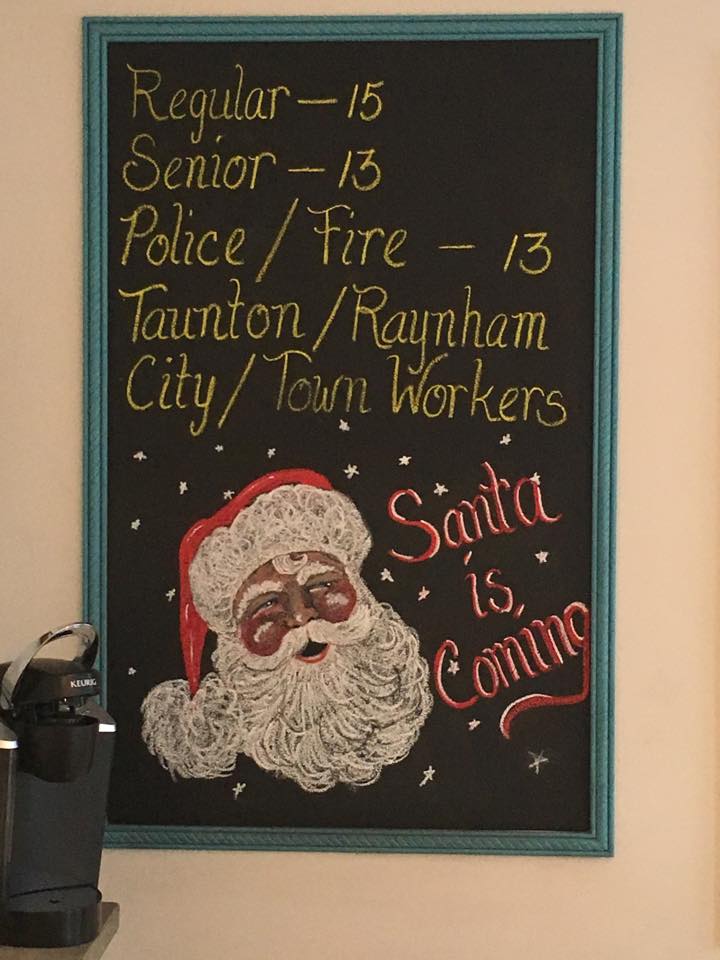 Regular — 15
Senior — 13
Police / Fire — 13
Taunton / Raynham
City / Town Workers
Santa
is
Coming
KEURIG